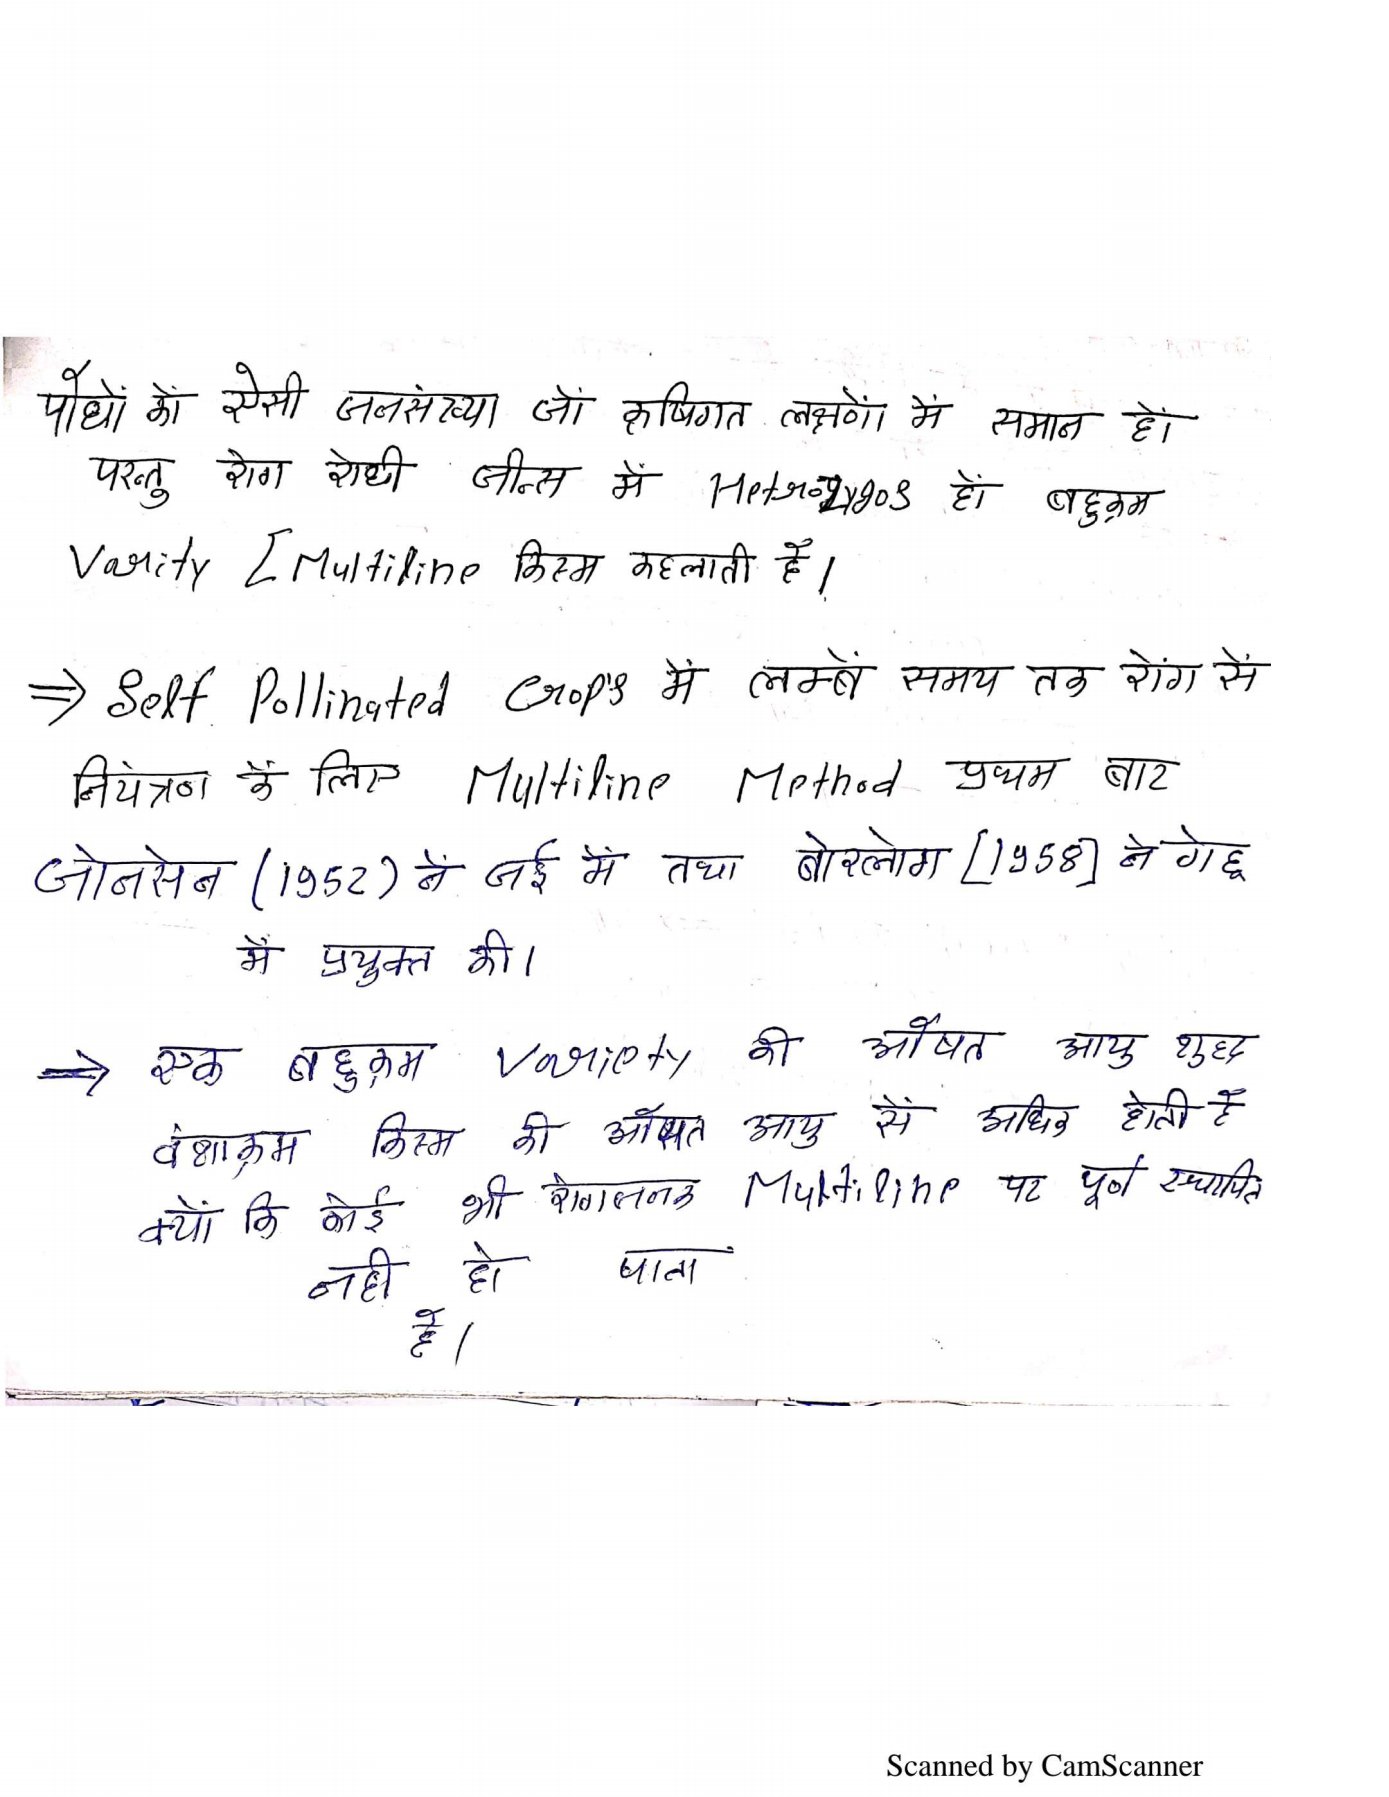 पौधों कों ऐसी जनसंख्या जों कृषिगत लक्षणों में समान हों
परन्तु रोग रोधी जीन्स में Hetrozygos हों बहुक्रम
Varity [Multiline किस्म कहलाती हैं।
⇒ Self Pollinated Crop's में लम्बें समय तक रोंग सें
नियंत्रण कें लिए Multiline Method प्रथम बार
जोनसेन (1952) नें जई में तथा बोरलोग [1958] ने गेहू
में प्रयुक्त की।
→ एक बहुक्रम Variety की औंषत आयु शुद्ध
वंशाक्रम किस्म की औंषत आयु सें अधिक होती हैं
क्यों कि कोई भी रोगजनक Multiline पर पूर्ण स्थापित
नही हो पाता
हैं।
Scanned by CamScanner